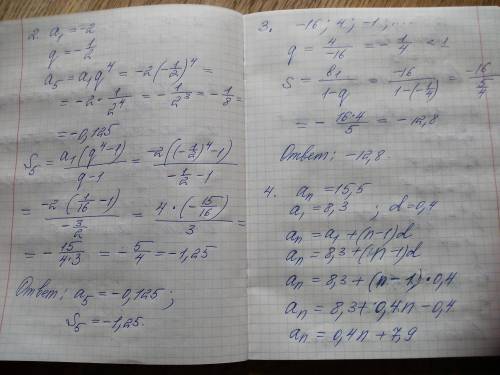 2. a₁ = -2
q = -1/2
a₅ = a₁q⁴ = -2(-1/2)⁴ =
= -2 · 1/2⁴ = -1/2³ = -1/8 =
= -0,125
S₅ = a₁(q⁴-1)/q-1 = -2((-1/2)⁴-1)/-1/2-1
= -2(1/16-1)/-3/2 = 4·(-15/16)/3 =
= -15/4·3 = -5/4 = -1,25
Ответ: a₅ = -0,125;
S₅ = -1,25.
3. -16; 4; -1; ...
q = 4/-16 = -1/4 < 1
S = a₁/1-q = -16/1-(-1/4) = -16/5/4
= -16·4/5 = -12,8
Ответ: -12,8
4. aₙ = 15,5
a₁ = 8,3 ; d = 0,4
aₙ = a₁ + (n-1)d
aₙ = 8,3 + (n-1)d
aₙ = 8,3 + (n-1)·0,4
aₙ = 8,3 + 0,4n - 0,4
aₙ = 0,4n + 7,9